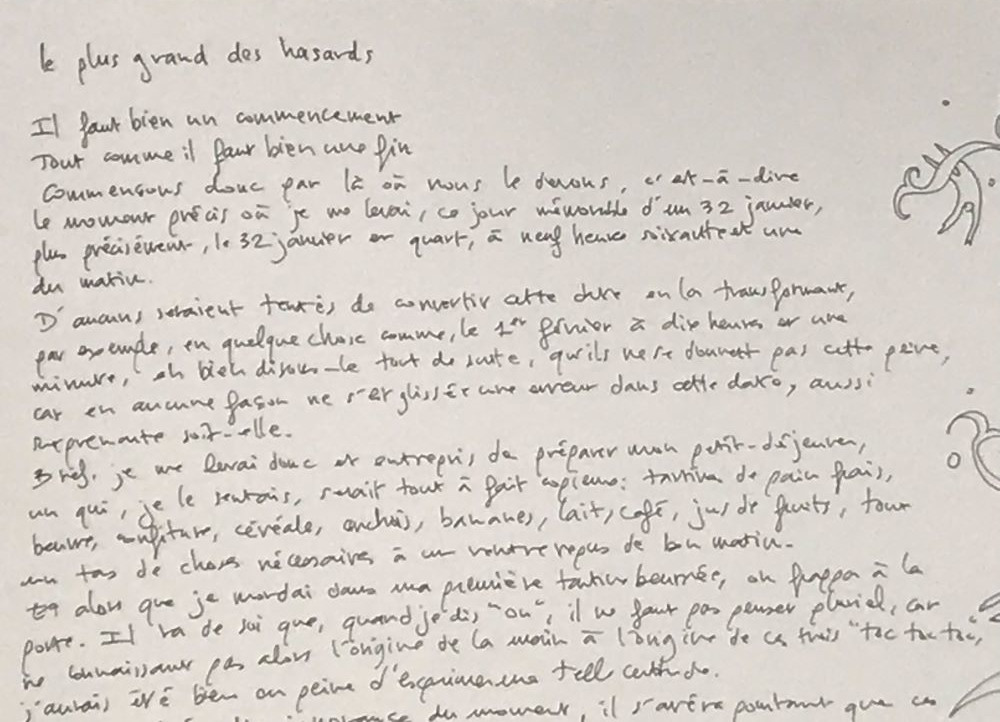 le plus grand des hasards
Il faut bien un commencement
Tout comme il faut bien une fin
Commençons donc par là où nous le devons, c'est-à-dire
le moment précis où je me levai, ce jour mémorable d'un 32 janvier,
plus précisément, le 32 janvier et quart, à neuf heures soixante et une
du matin.
D'aucuns seraient tentés de convertir cette date en la transformant,
par exemple, en quelque chose comme, le 1er février à dix heures et une
minute, eh bien disons-le tout de suite, qu'ils ne se donnent pas cette peine,
car en aucune façon ne s'est glissée une erreur dans cette date, aussi
surprenante soit-elle.
Bref, je me levai donc et entrepris de préparer mon petit-déjeuner,
un qui, je le sentais, serait tout à fait copieux : tartines de pain frais,
beurre, confiture, céréale, anchois, bananes, lait, café, jus de fruits, tout
un tas de choses nécessaires à un ventre repus de bon matin.
Et alors que je mordai dans ma première tartine beurrée, on frappa à la
porte. Il va de soi que, quand je dis "on", il ne faut pas penser pluriel, car
ne connaissant pas alors l'origine de la main à l'origine de ces trois "toc toc toc",
j'aurais été bien en peine d'exprimer une telle certitude.
du moment, il s'avéra pourtant que ces